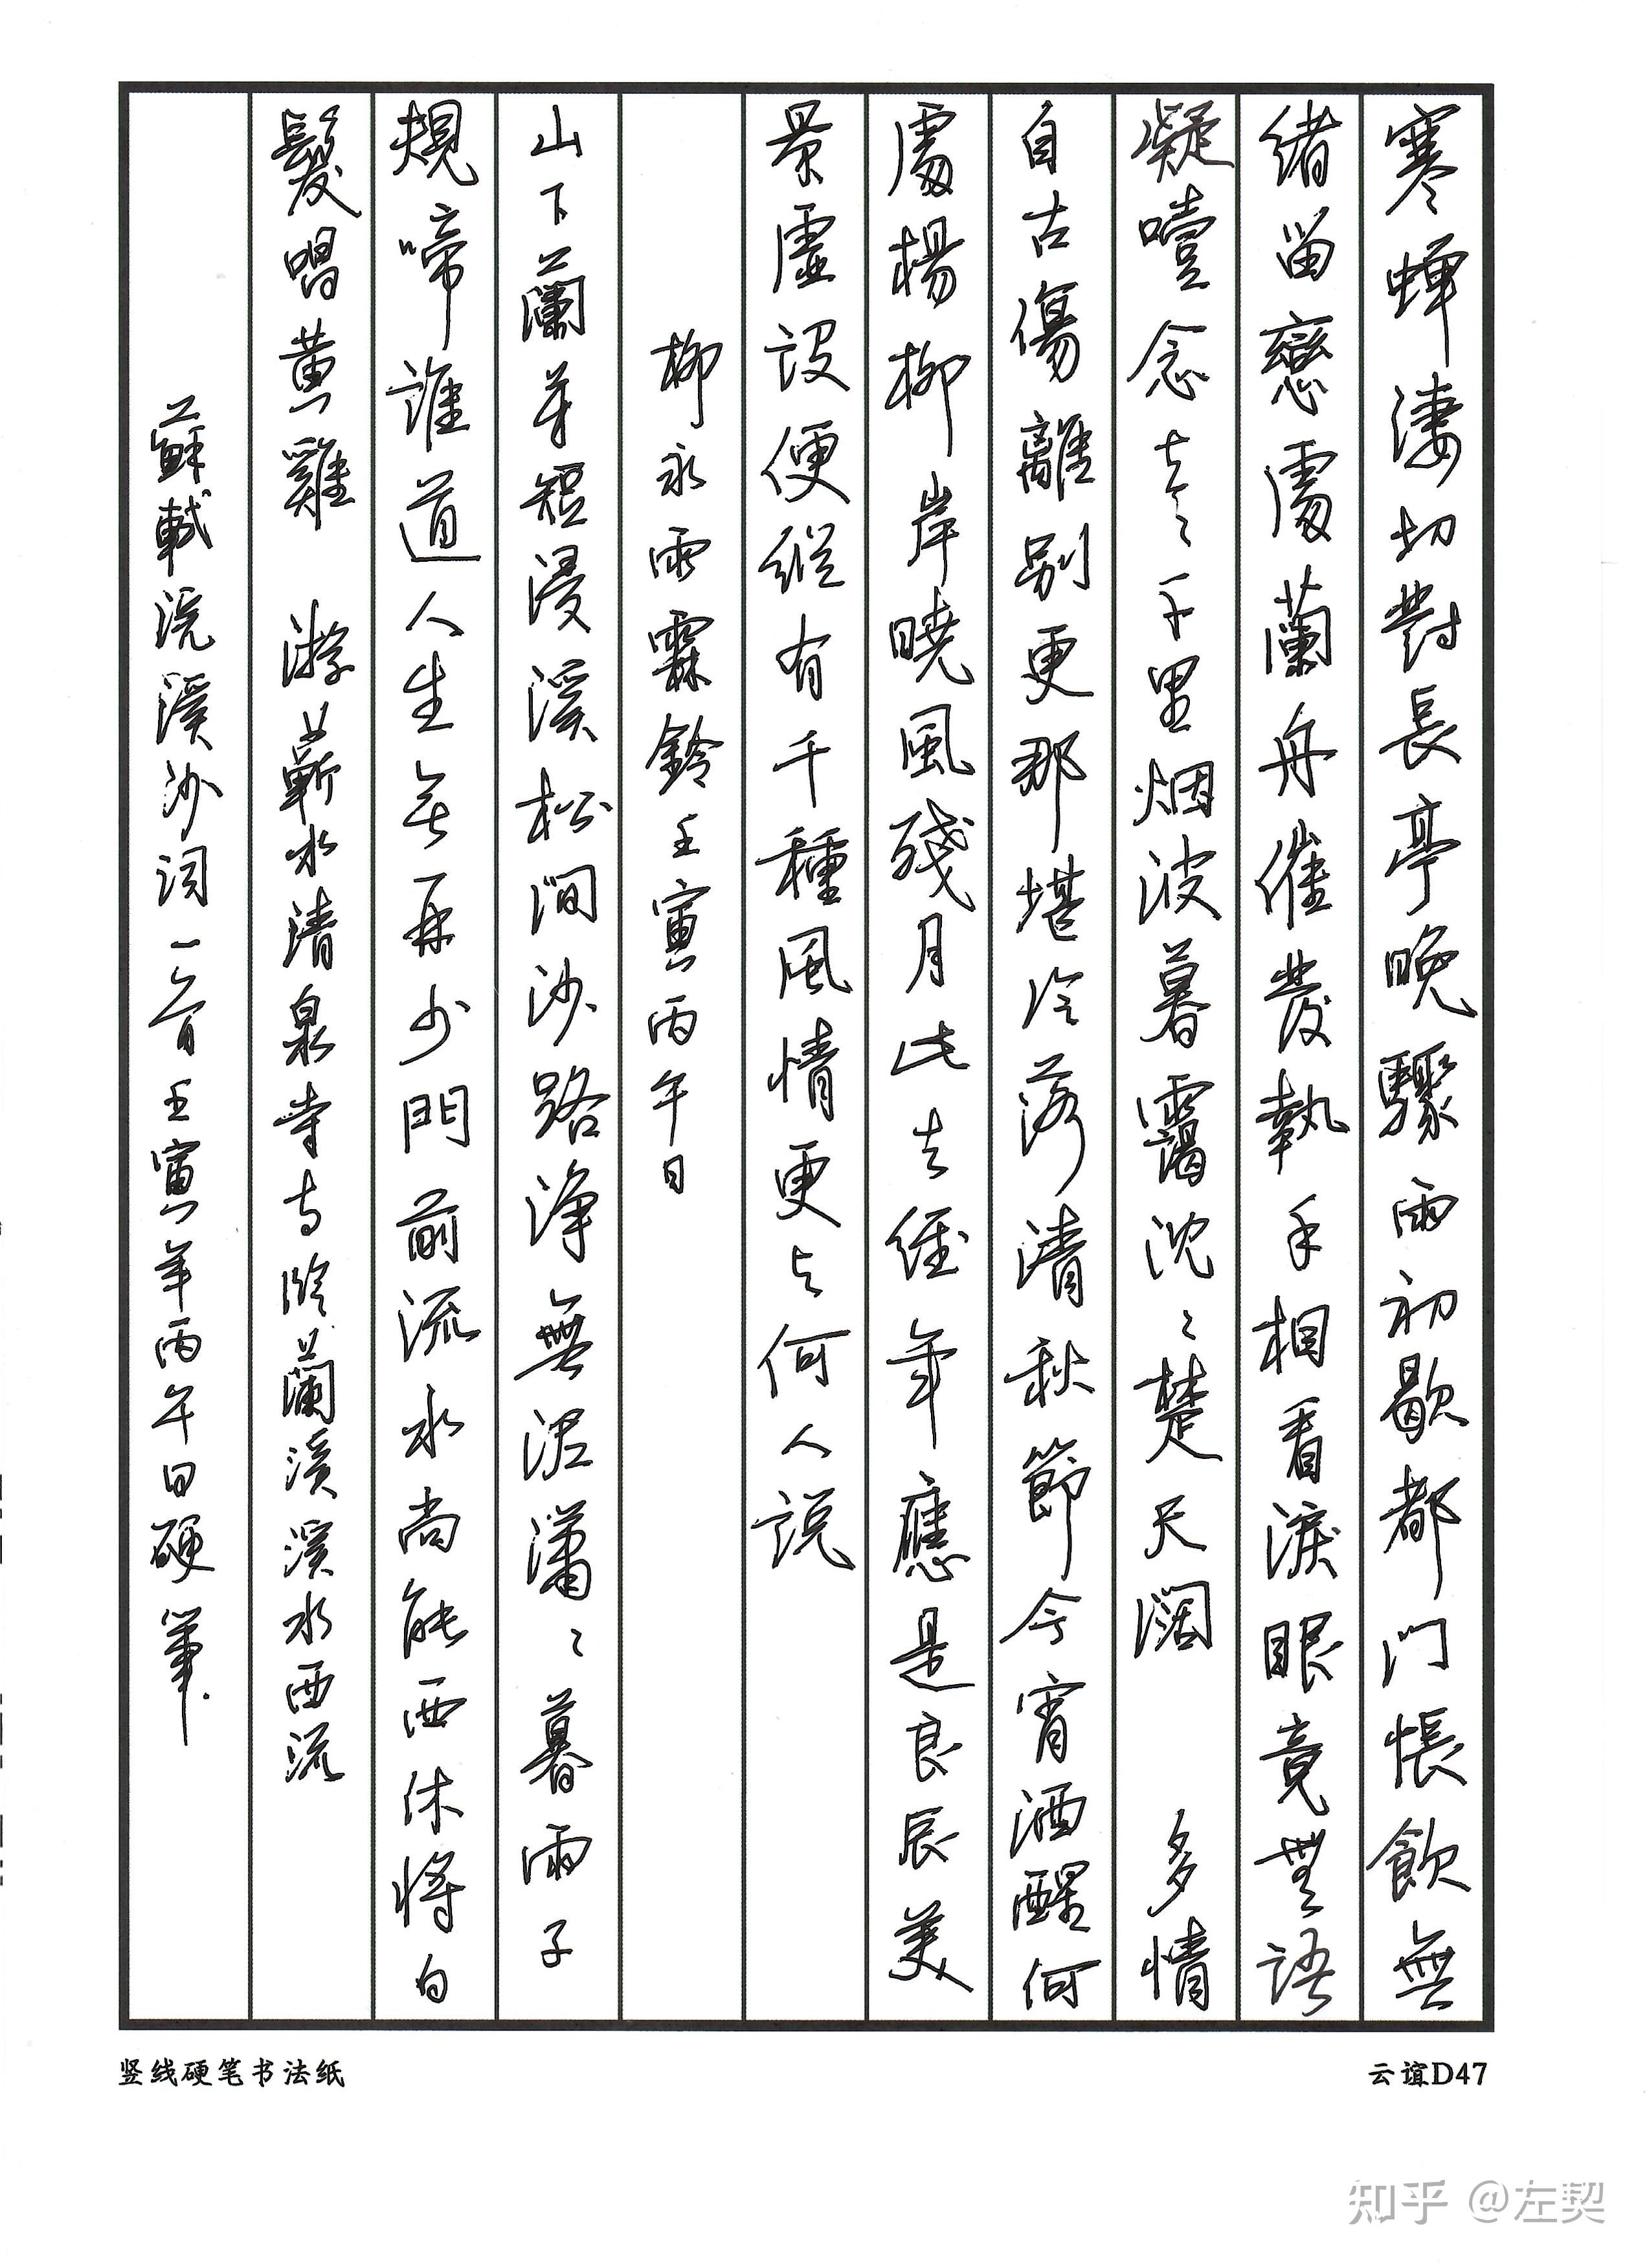 寒蟬淒切對長亭晚驟雨初歇都門悵飲無
緒留戀處蘭舟催發執手相看淚眼竟無語
凝噎念去去千里烟波暮靄沈〻楚天闊 多情
自古傷離別更那堪冷落清秋節今宵酒醒何
處楊柳岸曉風殘月此去經年應是良辰美
景虛設便縱有千種風情更與何人説
柳永雨霖鈴壬寅丙午日
山下蘭芽短浸溪松間沙路淨無泥瀟〻暮雨子
規啼誰道人生無再少門前流水尚能西休將白
髮唱黃雞 游蘄水清泉寺寺臨蘭溪溪水西流
蘇軾浣溪沙詞一首壬寅年丙午日硬筆
竖线硬笔书法纸
云谊D47
知乎 @左契